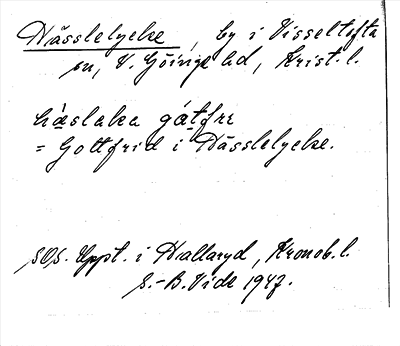 Hässlelycke, by i Visseltofta
sn, V. Göinge hd, Krist. l.
hàslaka gátfre
= Gottfrid i Hässlelycke.
SOS. Uppt. i Hallaryd, Kronob. l.
S.-B. Vide 1947.